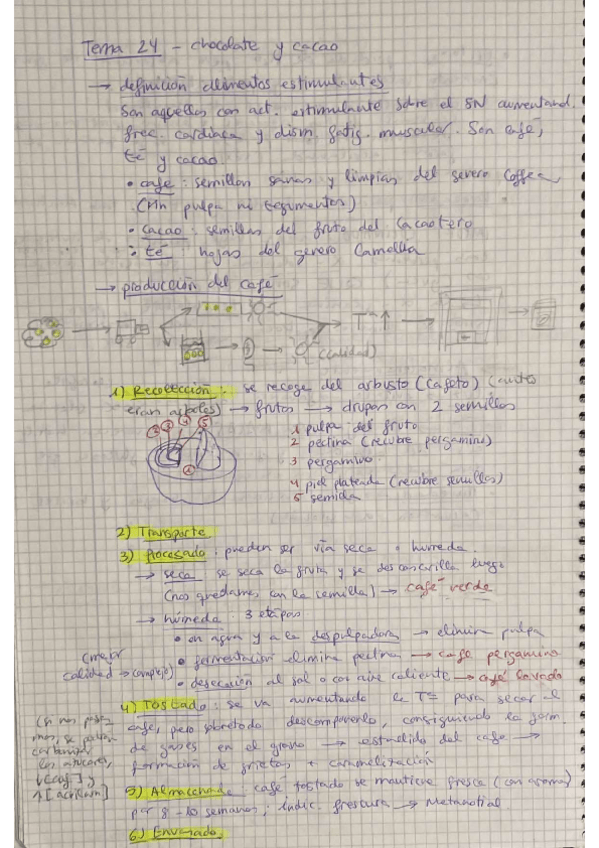 Tema 24 - chocolate y cacao
→ definición alimentos estimulantes
Son aquellos con act. estimulante sobre el SN aumentand.
frec. cardiaca y dism. fatig. muscular. Son café,
té y cacao.
• café: semillas sanas y limpias del genero Coffea
(sin pulpa ni tegumentos)
• cacao: semillas del fruto del Cacaotero
• té: hojas del genero Camellia
→ producción del café
T ͣ ↑
(calidad)
1) Recolección: se recoge del arbusto (cafeto) (antes
eran arboles) → frutos → drupas con 2 semillas
1 2 3 4 5
1 pulpa del fruto
2 pectina (recubre pergamino)
3 pergamino
4 piel plateada (recubre semillas)
5 semilla
2) Transporte
3) Procesado: pueden ser vía seca o humeda.
→ seca se seca la fruta y se descascarilla luego
(nos quedamos con la semilla) → café verde
→ húmeda: 3 etapas
• en agua y a la despulpadora → elimina pulpa
(mejor
calidad → complejo)
• fermentación elimina pectina → café pergamino
• desecación al sol o con aire caliente → café lavado
4) Tostado: se va aumentando la Tª para secar el
café, pero sobretodo descomponerlo, consiguiendo la form.
de gases en el grano → estallido del café →
formación de grietas + caramelización
(si nos pasa
mos, se
carboniza
los azucares,
↓[caf] y
↑[acrilam]
5) Almacenado: café tostado se mantiene fresco (con aroma)
por 8-10 semanas; indic. frescura →
6) Envasado.